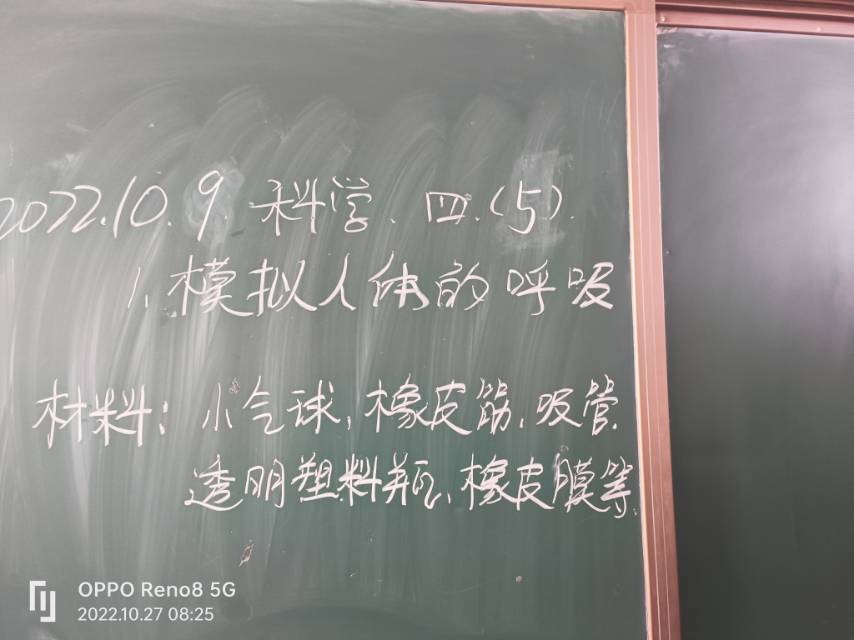 2022.10.9. 科学、四.(5).
1、模拟人体的呼吸
材料：小气球，橡皮筋、吸管
透明塑料瓶、橡皮膜等.
OPPO Reno8 5G
2022.10.27 08:25